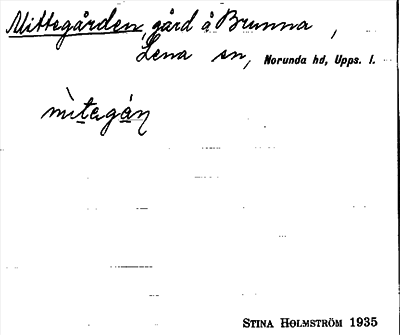 Mittegården, gård å Brunna,
Lena sn, Norunda hd, Upps. l.
mìtegán
STINA HOLMSTRÖM 1935